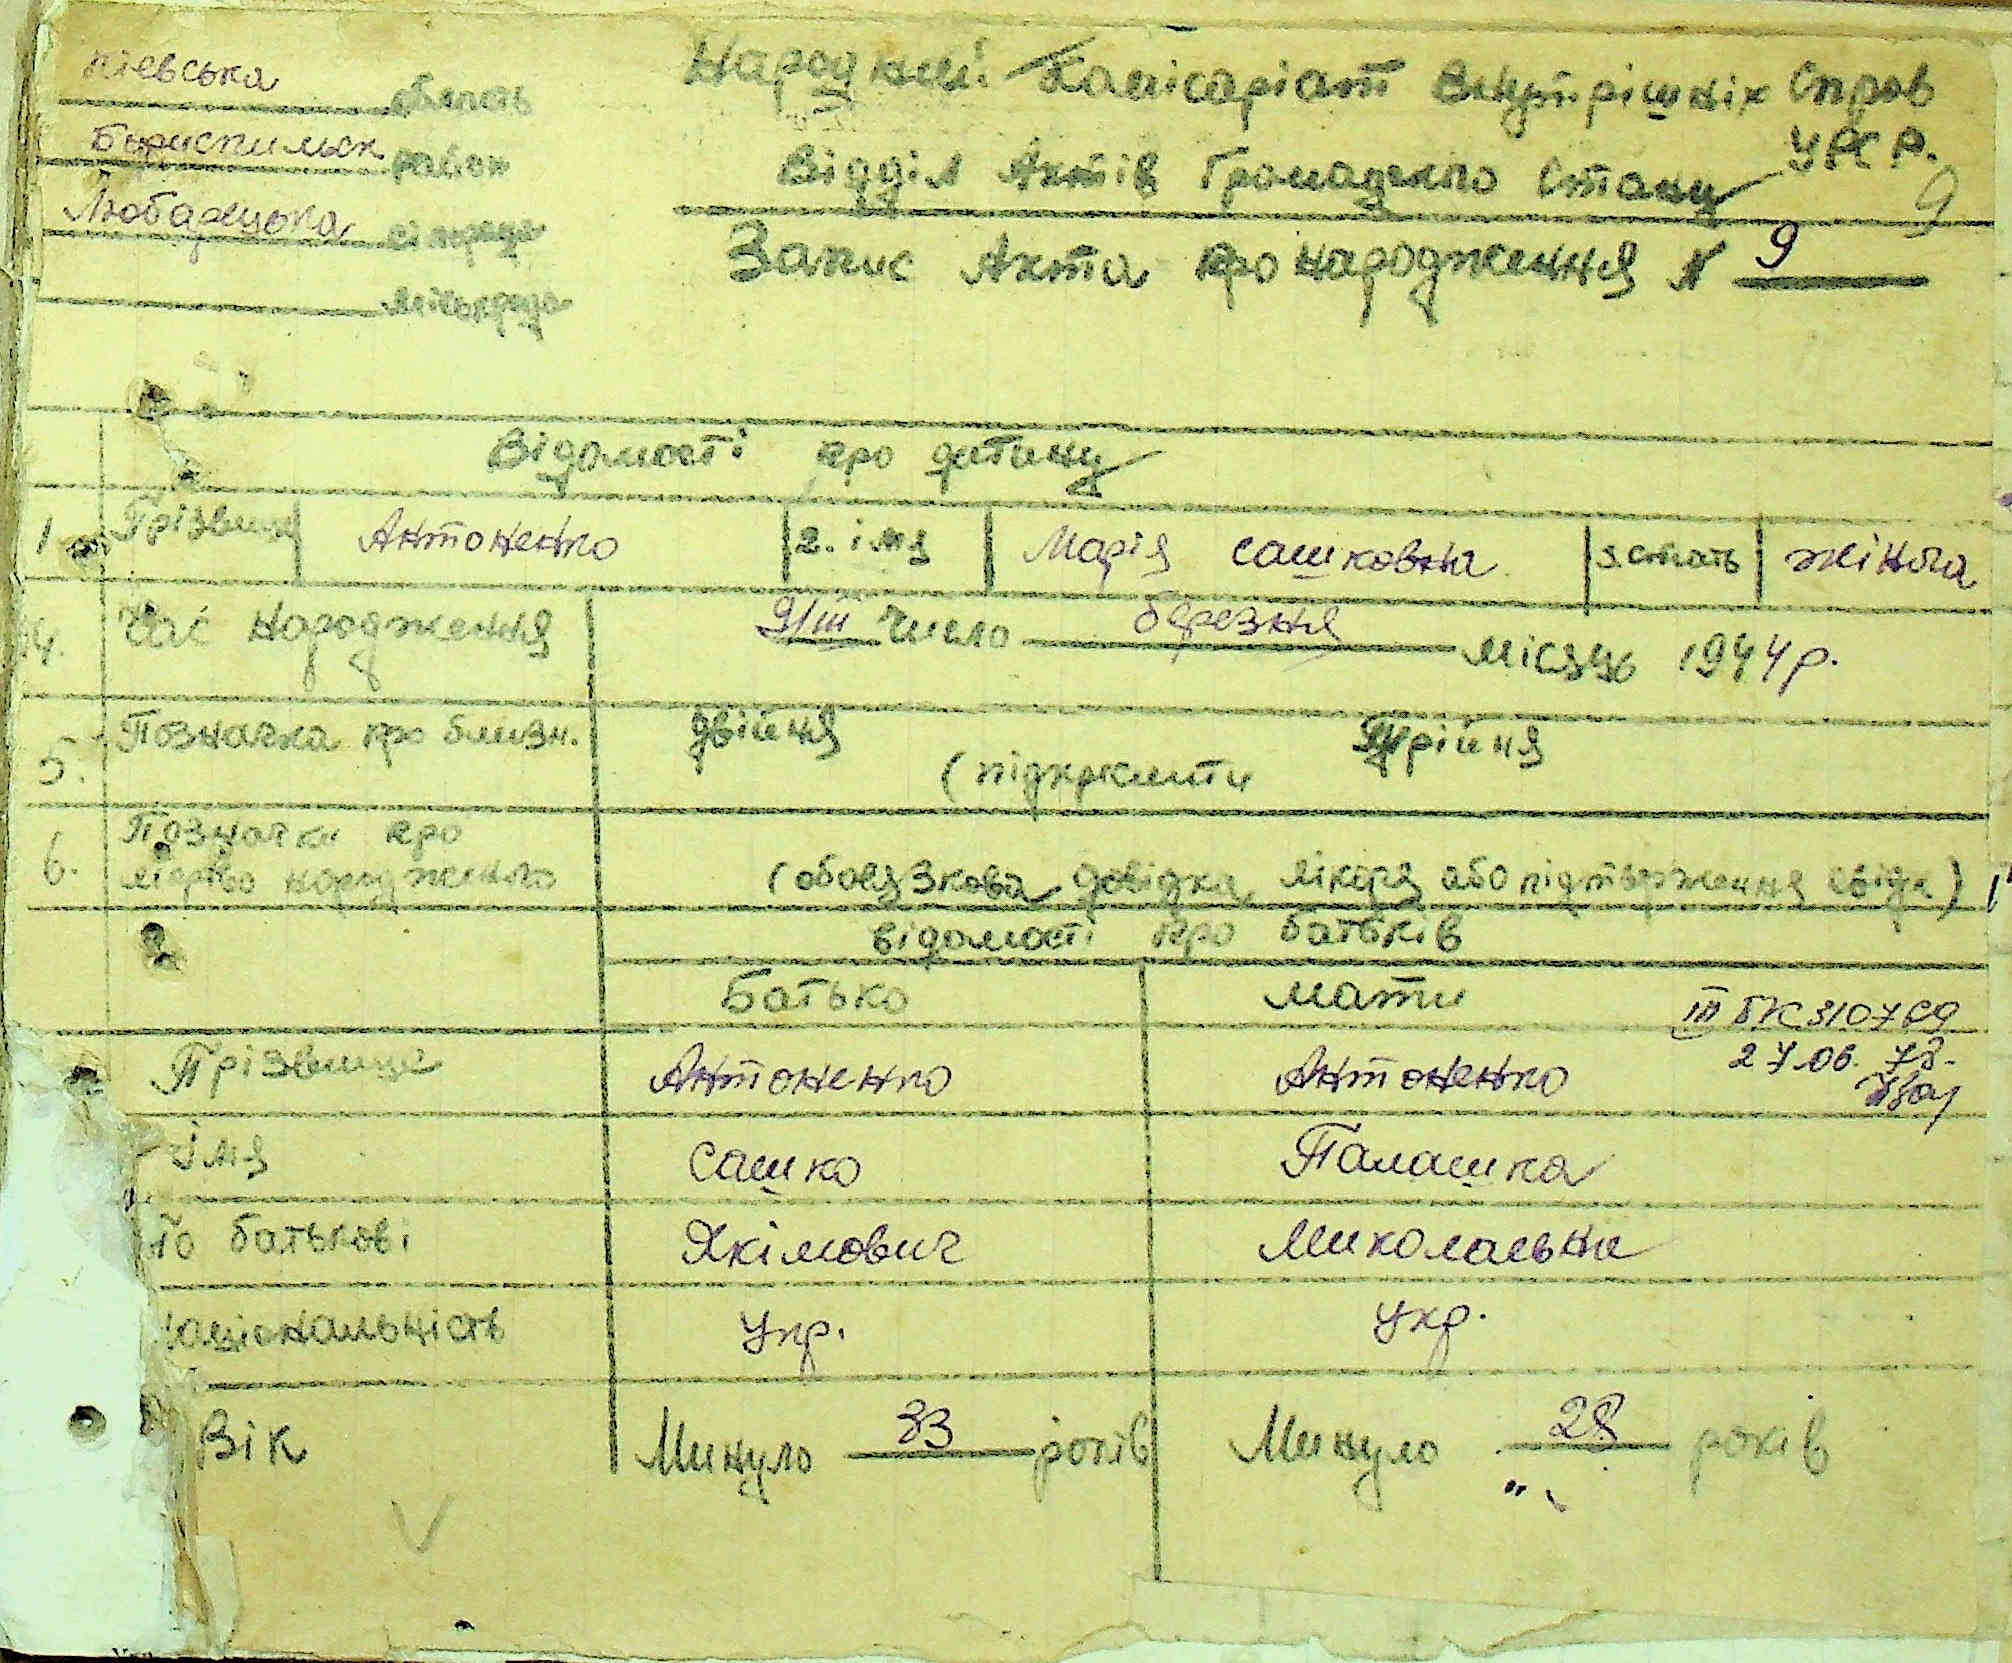 Кіевська область
Бориспильск район
Любарецька сільрада
міськрада
Народний Комісаріат Внутрішніх Справ
УРСР.
Відділ Актів Громадского Стану
9
Запис Акта про народження № 9
Відомості про дитину
1 Прізвище Антоненко 2. імя Марія Сашковна 3. стать жіноча
4. Час народження 9/III число березня місяць 1944 р.
5. Позначка про близн. двійня Трійня
(підкреслити
6. Позначки про
мертво народженого (обовязкова довідка лікаря або підтвердження свідк)
відомості про батьків
Батько Мати
III БК 310769
Прізвище Антоненко Антоненко 27.06. 78.
Імя Сашко Палашка
По батькові Якімович Миколаевна
Національність Укр. Укр.
Вік Минуло 33 років Минуло 28 років